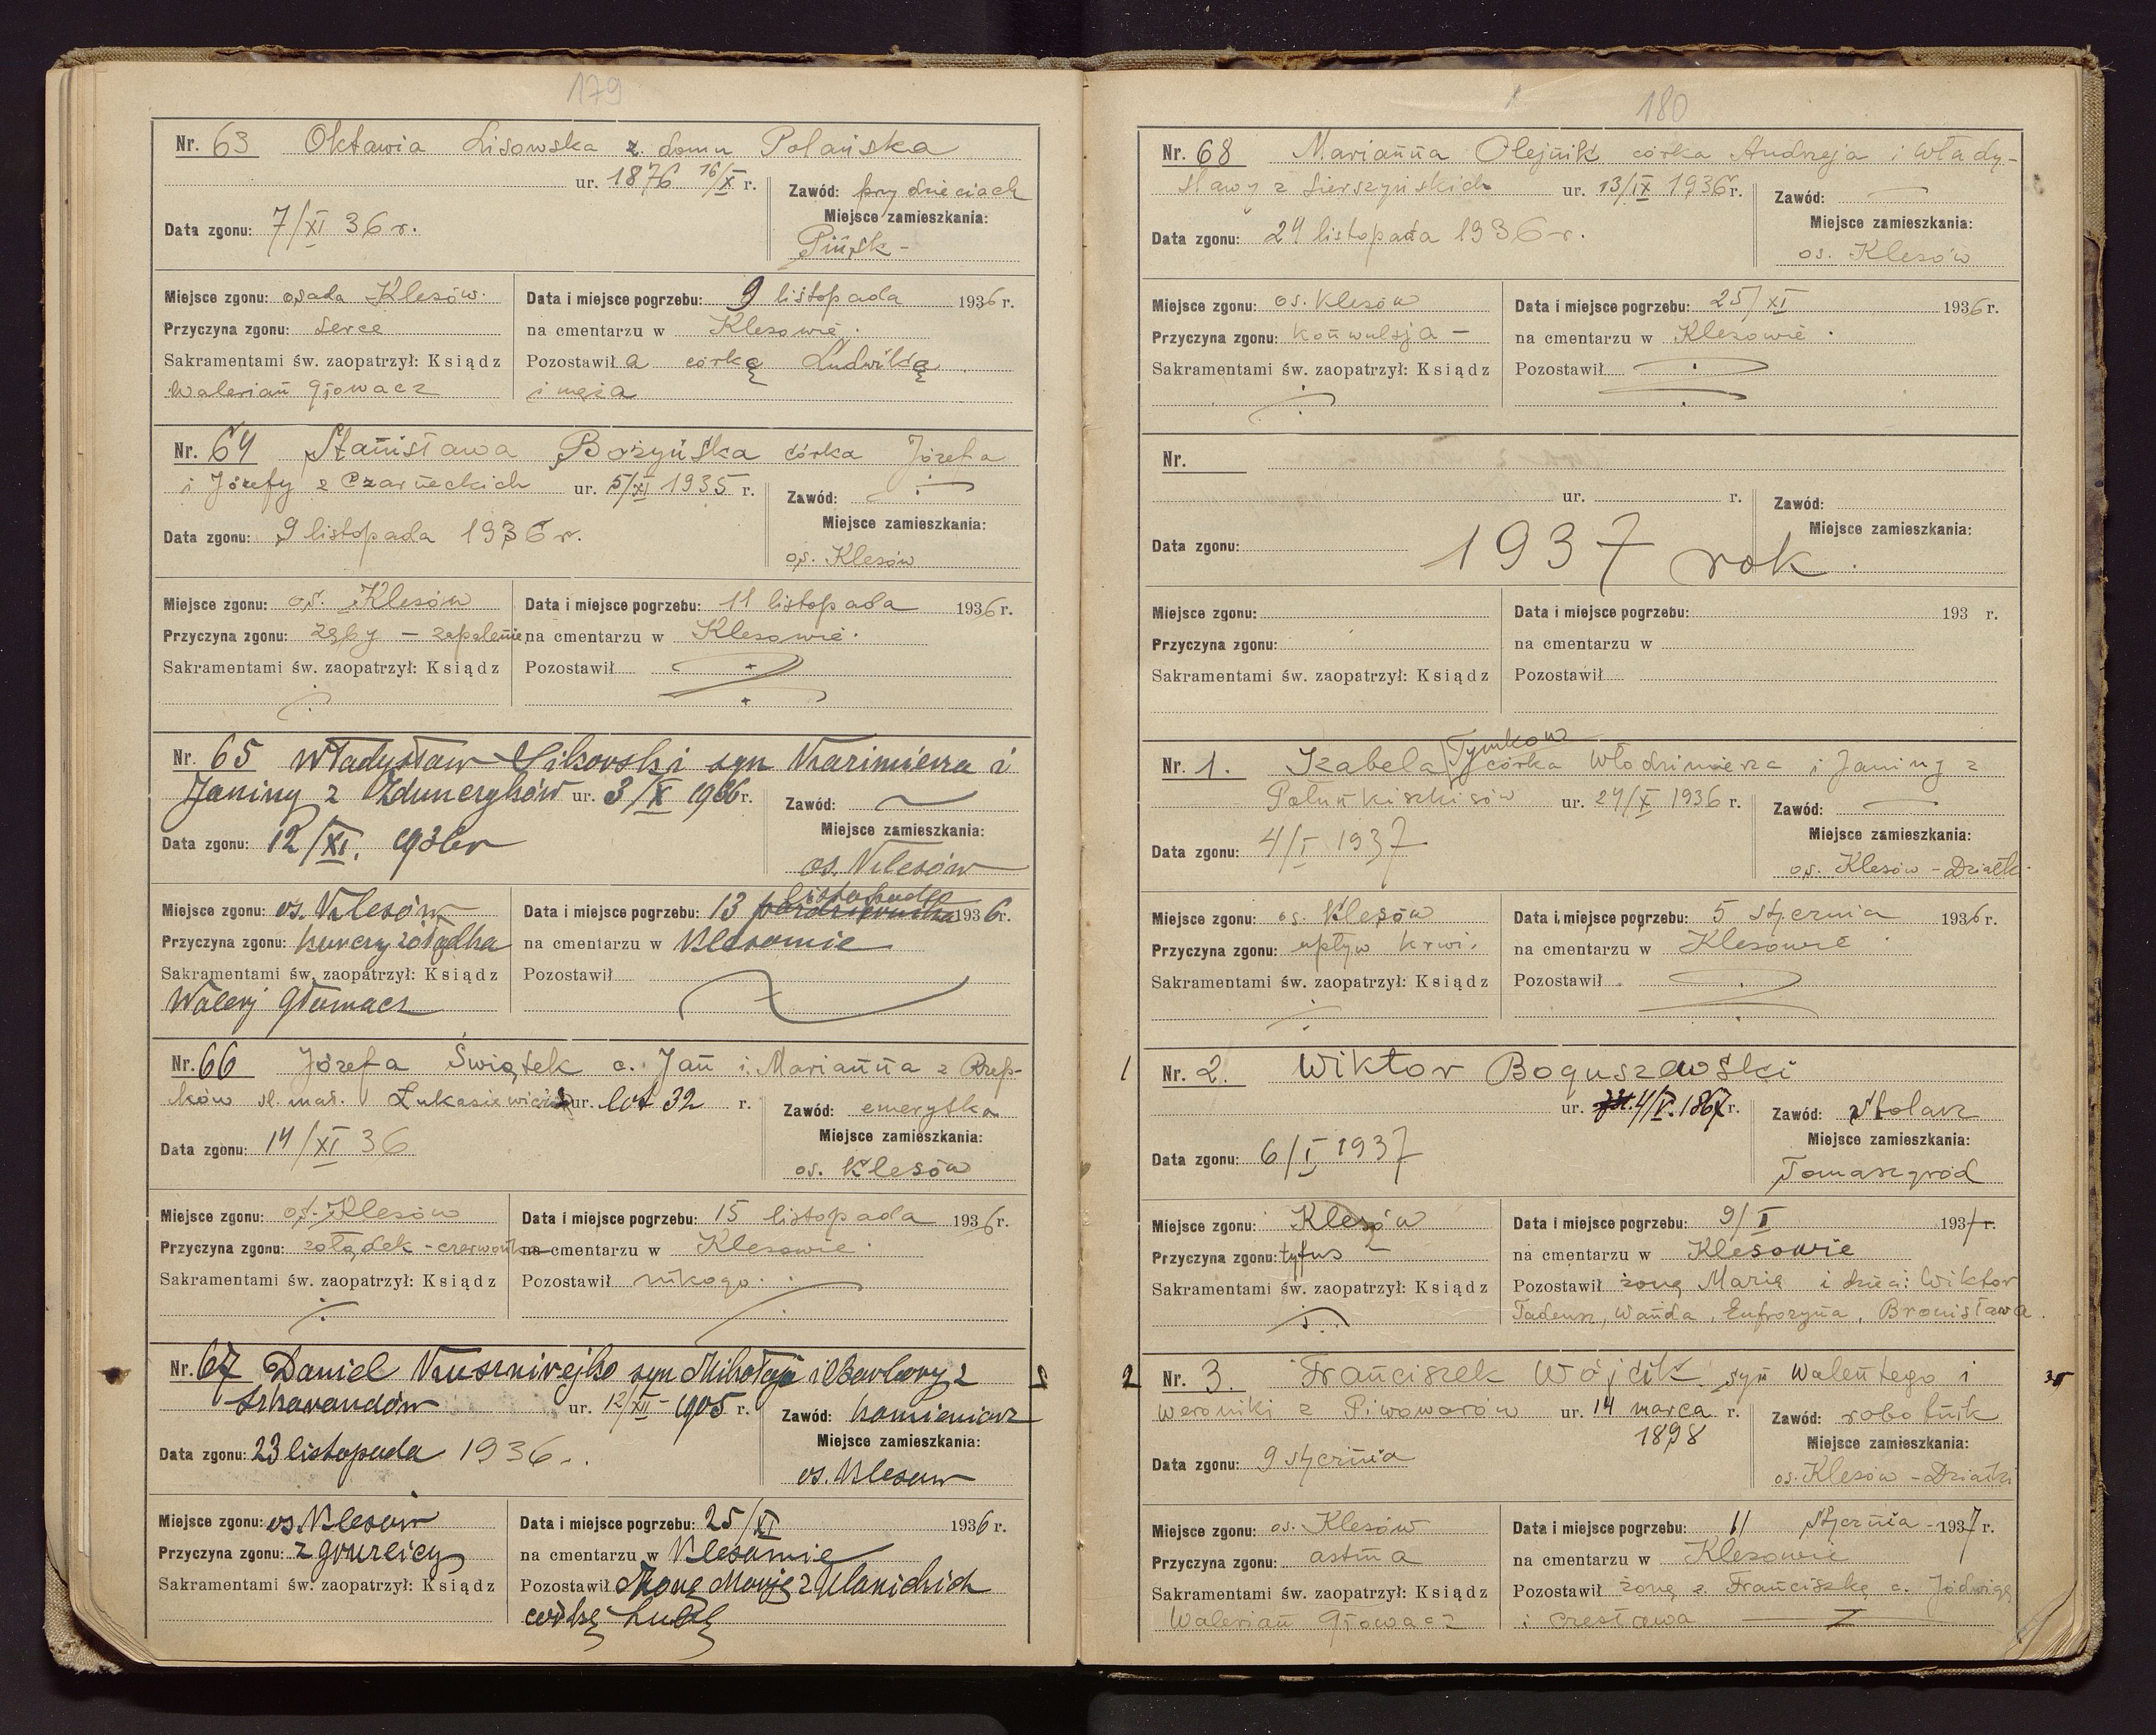 179
Nr. 63 Oktawia Lisowska z domu Polańska
ur. 1876 16/X r. Zawód: przy dzieciach
Miejsce zamieszkania:
Data zgonu: 7/XI 36 r. Pińsk -
Miejsce zgonu: osada Klesów. Data i miejsce pogrzebu: 9 listopada 1936 r.
Przyczyna zgonu: serce na cmentarzu w Klesowie.
Sakramentami św. zaopatrzył: Ksiądz Pozostawiła córkę Ludwikę
Walerian Głowacz i męża
Nr. 64 Stanisława Bożyńska córka Józefa
i Józefy z Czarneckich ur. 5/XI 1935 r. Zawód:
Miejsce zamieszkania:
Data zgonu: 9 listopada 1936 r. os. Klesów
Miejsce zgonu: os. Klesów Data i miejsce pogrzebu: 11 listopada 1936 r.
Przyczyna zgonu: zęby - zapalenie na cmentarzu w Klesowie.
Sakramentami św. zaopatrzył: Ksiądz Pozostawił
Nr. 65 Władysław Sikorski syn Kazimierza i
Janiny z ur. 3/X 1936 r. Zawód:
Miejsce zamieszkania:
Data zgonu: 12/XI. 1936 r os. Klesów
listopada
Miejsce zgonu: os. Klesów Data i miejsce pogrzebu: 13 października 1936 r.
Przyczyna zgonu: kurczy żołądka na cmentarzu w Klesowie
Sakramentami św. zaopatrzył: Ksiądz Pozostawił
Walerj Głowacz
Nr. 66 Józefa Świątek c. Jan i Marianna z Rzep-
ków Łukasiewicz ur. lat 32 r. Zawód: emerytka
Miejsce zamieszkania:
Data zgonu: 14/XI 36 os. Klesów
Miejsce zgonu: os. Klesów Data i miejsce pogrzebu: 15 listopada 1936 r.
Przyczyna zgonu: żołądek - czerwonka na cmentarzu w Klesowie.
Sakramentami św. zaopatrzył: Ksiądz Pozostawił nikogo.
Nr. 67 Daniel Kusznirejko syn Mikołaja i Barbary z
ur. 12/XII - 1905 r. Zawód: kamieniarz
Miejsce zamieszkania:
Data zgonu: 23 listopada 1936. os. Klesów
Miejsce zgonu: os. Klesów Data i miejsce pogrzebu: 25/XI 1936 r.
Przyczyna zgonu: z gruźlicy na cmentarzu w Klesowie
Sakramentami św. zaopatrzył: Ksiądz Pozostawił żonę Marję z
córkę
180
Nr. 68 Marianna Olejnik córka Andrzeja i Włady-
sławy z Sierszyńskich ur. 13/IX 1936 r. Zawód:
Miejsce zamieszkania:
Data zgonu: 24 listopada 1936 r. os. Klesów
Miejsce zgonu: os. Klesów Data i miejsce pogrzebu: 25/XI 1936 r.
Przyczyna zgonu: konwulsja - na cmentarzu w Klesowie.
Sakramentami św. zaopatrzył: Ksiądz Pozostawił
Nr.
ur. r. Zawód:
Miejsce zamieszkania:
Data zgonu: 1937 rok.
Miejsce zgonu: Data i miejsce pogrzebu: 193 r.
Przyczyna zgonu: na cmentarzu w
Sakramentami św. zaopatrzył: Ksiądz Pozostawił
Tymkow
Nr. 1. Izabela córka Włodzimierza i Janiny z
ur. 24/X 1936 r. Zawód:
Miejsce zamieszkania:
Data zgonu: 4/I 1937 os. Klesów - Działki
Miejsce zgonu: os. Klesów Data i miejsce pogrzebu: 5 stycznia 1936 r.
Przyczyna zgonu: upływ krwi. na cmentarzu w Klesowie
Sakramentami św. zaopatrzył: Ksiądz Pozostawił
1
Nr. 2. Wiktor Boguszewski
ur. 4/V. 1867 r. Zawód: stolarz
Miejsce zamieszkania:
Data zgonu: 6/I 1937 Tomaszgród
Miejsce zgonu: Klesów Data i miejsce pogrzebu: 9/I 1937 r.
Przyczyna zgonu: tyfus na cmentarzu w Klesowie
Sakramentami św. zaopatrzył: Ksiądz Pozostawił żonę Marię i dzieci: Wiktor
Tadeusz, Wanda, Eufrozyna, Bronisława.
2
Nr. 3. Franciszek Wójcik syn Walentego i
Weroniki z Piwowarów ur. 14 marca r. Zawód: robotnik
1898
Miejsce zamieszkania:
Data zgonu: 9 stycznia os. Klesów - Działki
Miejsce zgonu: os. Klesów Data i miejsce pogrzebu: 11 stycznia - 1937 r.
Przyczyna zgonu: astma na cmentarzu w Klesowie
Sakramentami św. zaopatrzył: Ksiądz Pozostawił żonę z. Franciszkę c. Jadwigę
Walerian Głowacz i Czesława